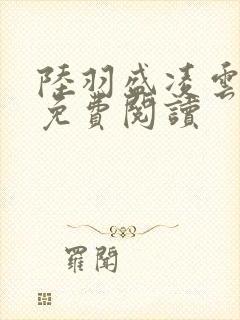 陸羽盛凌雲
免費閱讀
羅聞